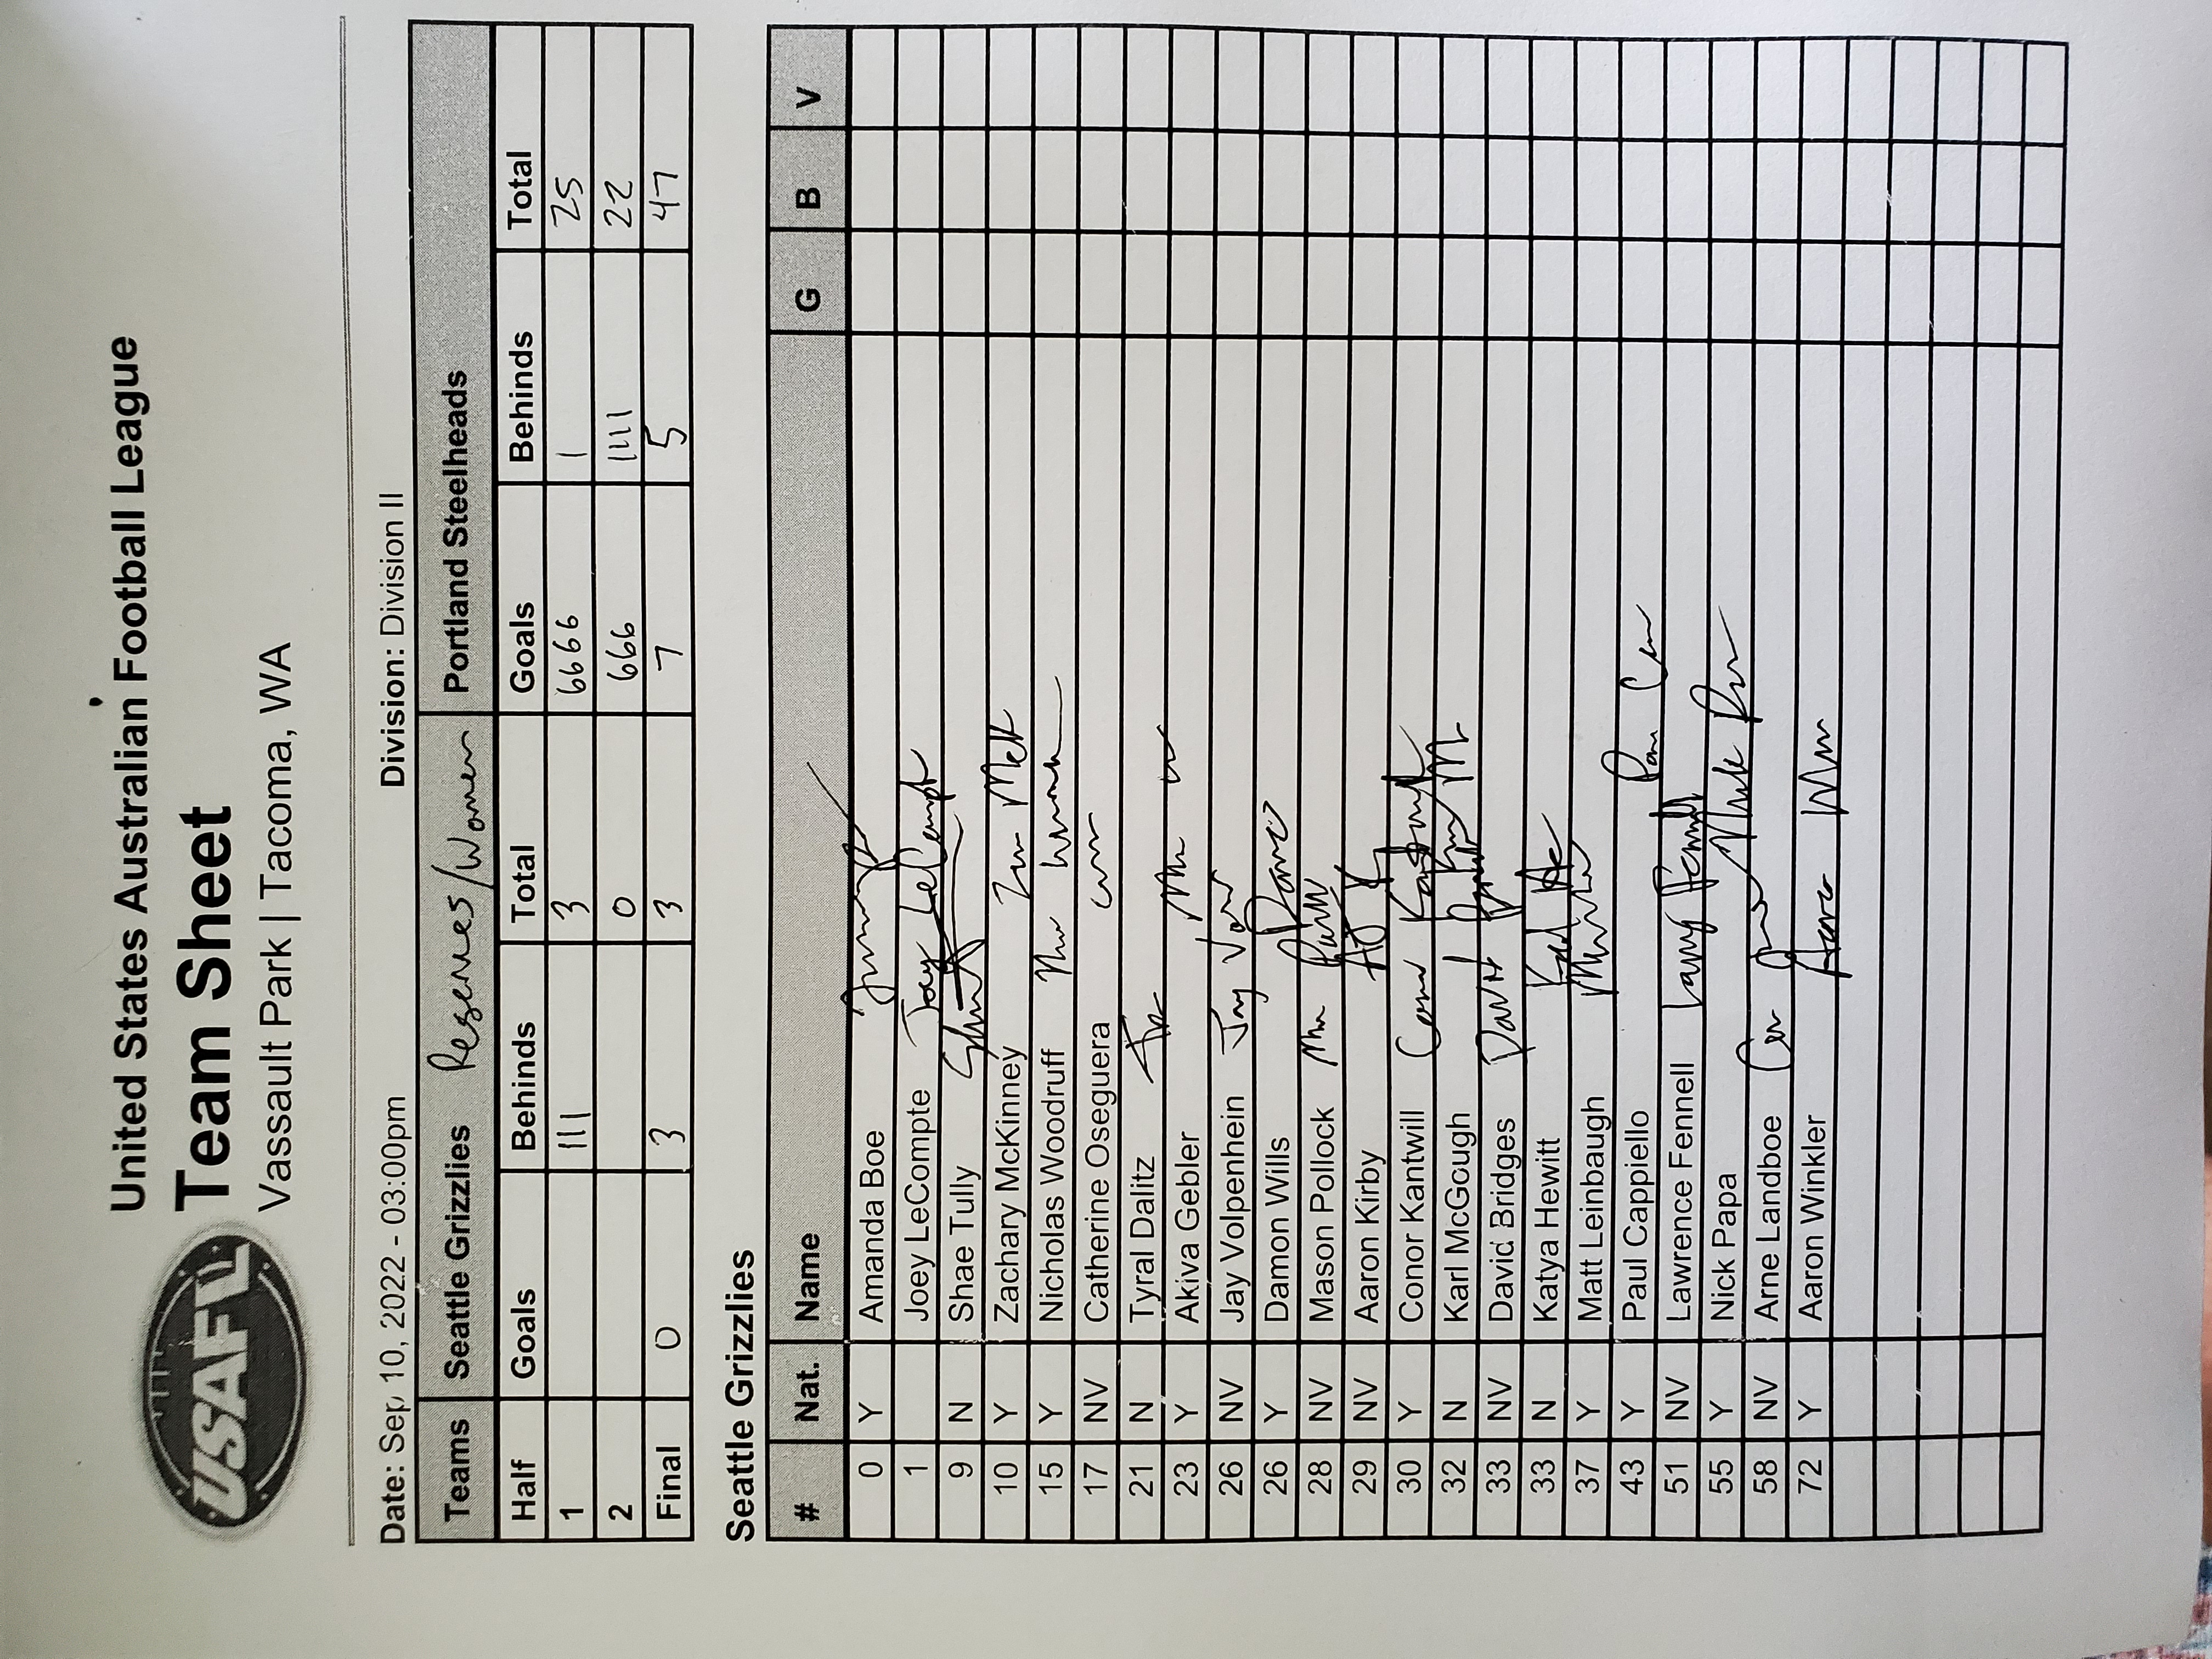 USAFL
United States Australian Football League
Team Sheet
Vassault Park | Tacoma, WA
Date: Sep 10, 2022 - 03:00pm Division: Division II
Teams Seattle Grizzlies Reserves/Women Portland Steelheads
Half Goals Behinds Total Goals Behinds Total
1 111 3 6666 1 25
2 0 666 1111 22
Final 0 3 3 7 5 47
Seattle Grizzlies
# Nat. Name G B V
0 Y Amanda Boe
1 Joey LeCompte Joey LeCompte
9 N Shae Tully
10 Y Zachary McKinney
15 Y Nicholas Woodruff
17 NV Catherine Oseguera
21 N Tyral Dalitz
23 Y Akiva Gebler
26 NV Jay Volpenhein Jay
26 Y Damon Wills
28 NV Mason Pollock
29 NV Aaron Kirby
30 Y Conor Kantwill
32 N Karl McGough
33 NV David Bridges
33 N Katya Hewitt
37 Y Matt Leinbaugh
43 Y Paul Cappiello
51 NV Lawrence Fennell Larry Fennell
55 Y Nick Papa
58 NV Arne Landboe
72 Y Aaron Winkler